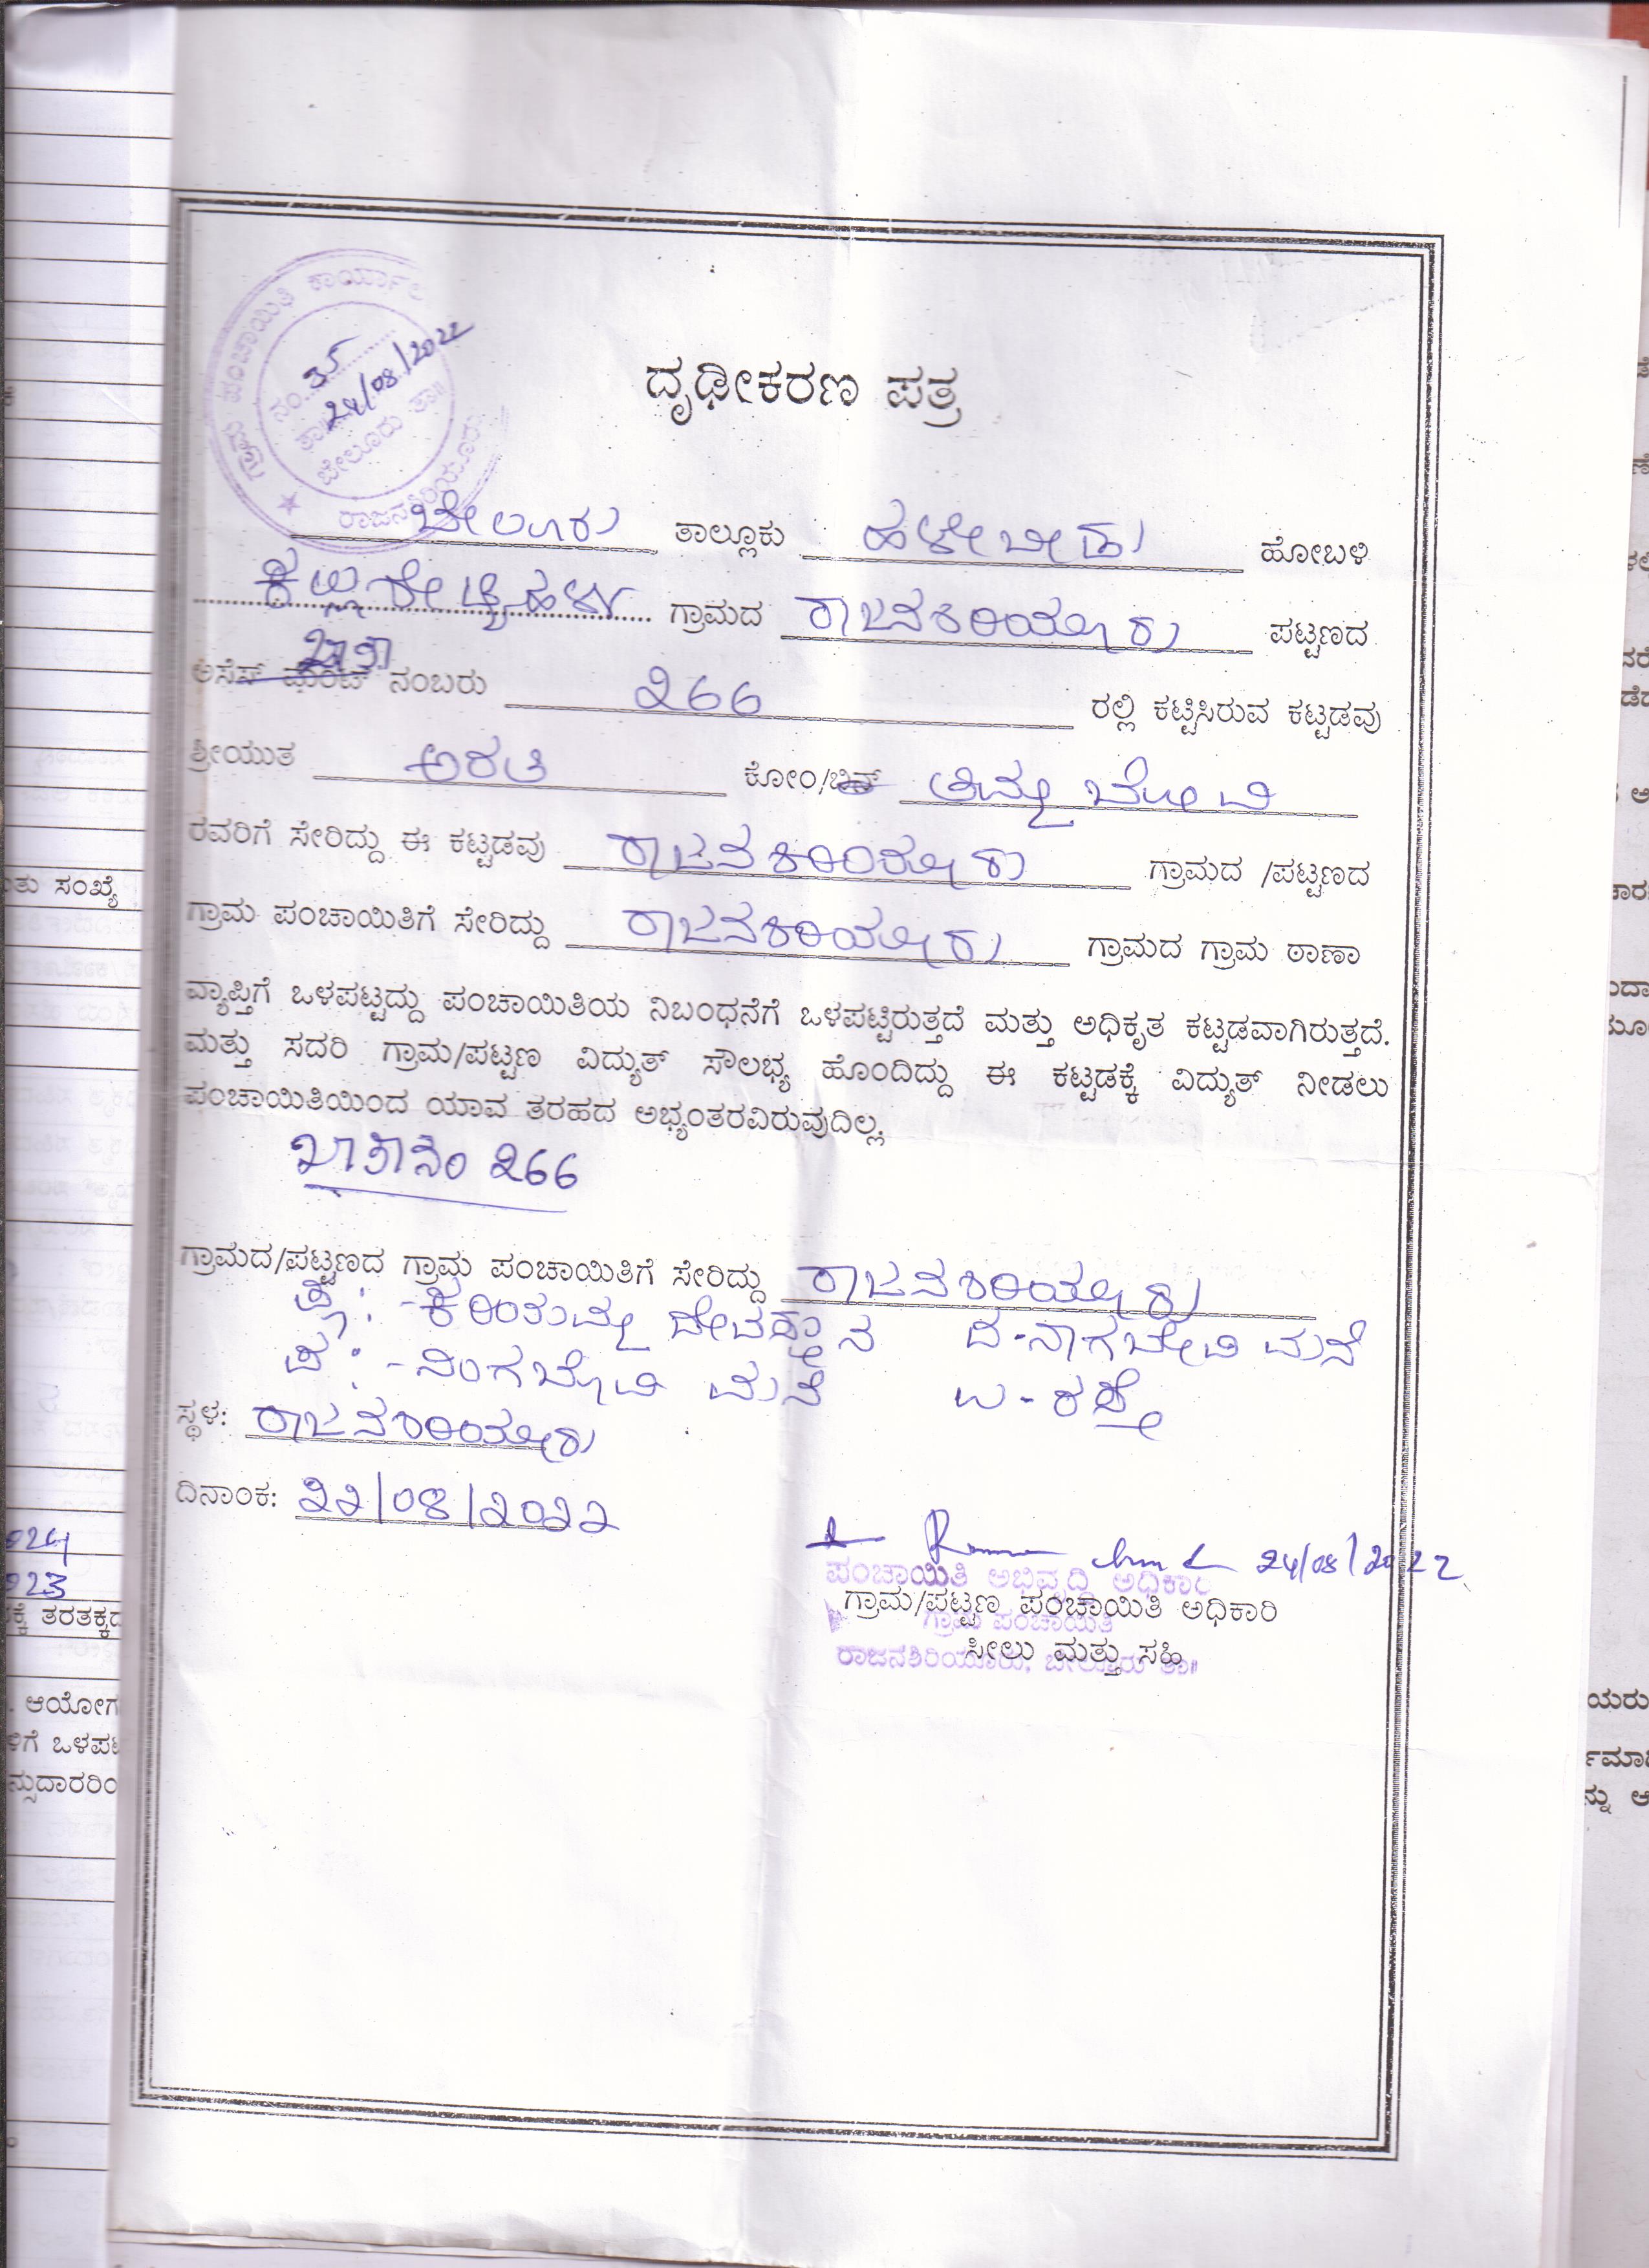 ಗ್ರಾಮ ಪಂಚಾಯಿತಿ ಕಾರ್ಯಾಲ
ನಂ. 35
ತಾ 24/08/2022
ಬೇಲೂರು ತಾ||
ರಾಜನಶಿರಿಯೂರು
ದೃಢೀಕರಣ ಪತ್ರ
ಬೇಲೂರು ತಾಲ್ಲೂಕು ಹಳೇಬೀಡು ಹೋಬಳಿ
ಕಲ್ಲುಶೇಟ್ಟಿಹಳ್ಳಿ ಗ್ರಾಮದ ರಾಜನಶಿರಿಯೂರು ಪಟ್ಟಣದ
ಖಾತಾ
ಅಸೆಸ್ ಮೆಂಟ್ ನಂಬರು ೨66 ರಲ್ಲಿ ಕಟ್ಟಿಸಿರುವ ಕಟ್ಟಡವು
ಶ್ರೀಯುತ ಅರತಿ ಕೋಂ/ಬಿನ್ ತಿಮ್ಮ ಬೋವಿ
ರವರಿಗೆ ಸೇರಿದ್ದು ಈ ಕಟ್ಟಡವು ರಾಜನಶಿರಿಯೂರು ಗ್ರಾಮದ /ಪಟ್ಟಣದ
ಗ್ರಾಮ ಪಂಚಾಯಿತಿಗೆ ಸೇರಿದ್ದು ರಾಜನಶಿರಿಯೂರು ಗ್ರಾಮದ ಗ್ರಾಮ ಠಾಣಾ
ವ್ಯಾಪ್ತಿಗೆ ಒಳಪಟ್ಟದ್ದು ಪಂಚಾಯಿತಿಯ ನಿಬಂಧನೆಗೆ ಒಳಪಟ್ಟಿರುತ್ತದೆ ಮತ್ತು ಅಧಿಕೃತ ಕಟ್ಟಡವಾಗಿರುತ್ತದೆ.
ಮತ್ತು ಸದರಿ ಗ್ರಾಮ/ಪಟ್ಟಣ ವಿದ್ಯುತ್ ಸೌಲಭ್ಯ ಹೊಂದಿದ್ದು ಈ ಕಟ್ಟಡಕ್ಕೆ ವಿದ್ಯುತ್ ನೀಡಲು
ಪಂಚಾಯಿತಿಯಿಂದ ಯಾವ ತರಹದ ಅಭ್ಯಂತರವಿರುವುದಿಲ್ಲ.
ಖಾತಾನಂ ೨66
ಗ್ರಾಮದ/ಪಟ್ಟಣದ ಗ್ರಾಮ ಪಂಚಾಯಿತಿಗೆ ಸೇರಿದ್ದು ರಾಜನಶಿರಿಯೂರು
ಪೂ: - ಕರಿಯಮ್ಮ ದೇವಸ್ಥಾನ ದ-ನಾಗಬೋವಿ ಮನೆ
ಪ: - ನಿಂಗಬೋವಿ ಮನೆ ಉ - ರಸ್ತೆ
ಸ್ಥಳ: ರಾಜನಶಿರಿಯೂರು
ದಿನಾಂಕ: ೨೨/08/೨0೨೨
24/08/2022
ಪಂಚಾಯಿತಿ ಅಭಿವೃದ್ಧಿ ಅಧಿಕಾರಿ
ಗ್ರಾಮ/ಪಟ್ಟಣ ಪಂಚಾಯಿತಿ ಅಧಿಕಾರಿ
ಗ್ರಾಮ ಪಂಚಾಯಿತಿ
ಸೀಲು ಮತ್ತು ಸಹಿ
ರಾಜನಶಿರಿಯೂರು, ಬೇಲೂರು ತಾ||
ತು ಸಂಖ್ಯೆ
024
023
ಕ್ಕೆ ತರತಕ್ಕದ
ಆಯೋಗ
ಳಿಗೆ ಒಳಪಟ
ನ್ಸುದಾರರಿಂ